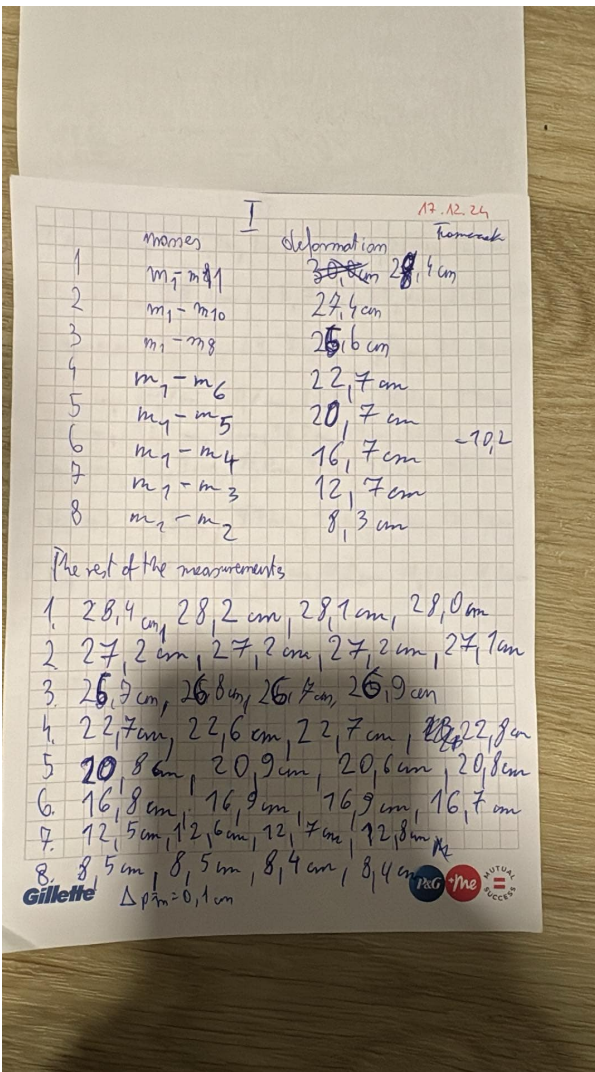 I
17.12.24
masses deformation
1 m₁-m11 28,4 cm
2 m₁-m₁₀ 27,4 cm
3 m₁-m8 26,6 cm
4 m₁-m₆ 22,7 cm
5 m₁-m₅ 20,7 cm
6 m₁-m₄ 16,7 cm -10,2
7 m₁-m₃ 12,7 cm
8 m₁-m₂ 8,3 cm
The rest of the measurements
1. 28,4 cm, 28,2 cm, 28,1 cm, 28,0 cm
2 27,2 cm, 27,2 cm, 27,2 cm, 27,1 cm
3. 26,7cm, 26,8cm, 26,7cm, 26,9 cm
4. 22,7cm, 22,6 cm, 22,7 cm, 22,8cm
5 20,8cm, 20,9cm, 20,6cm, 20,8cm
6. 16,8cm, 16,9cm, 16,9cm, 16,7 cm
7. 12,5cm, 12,6cm, 12,7cm, 12,8cm
8. 8,5cm, 8,5cm, 8,4cm, 8,4cm
Gillette P&G +Me MUTUAL SUCCESS
=0,1 cm